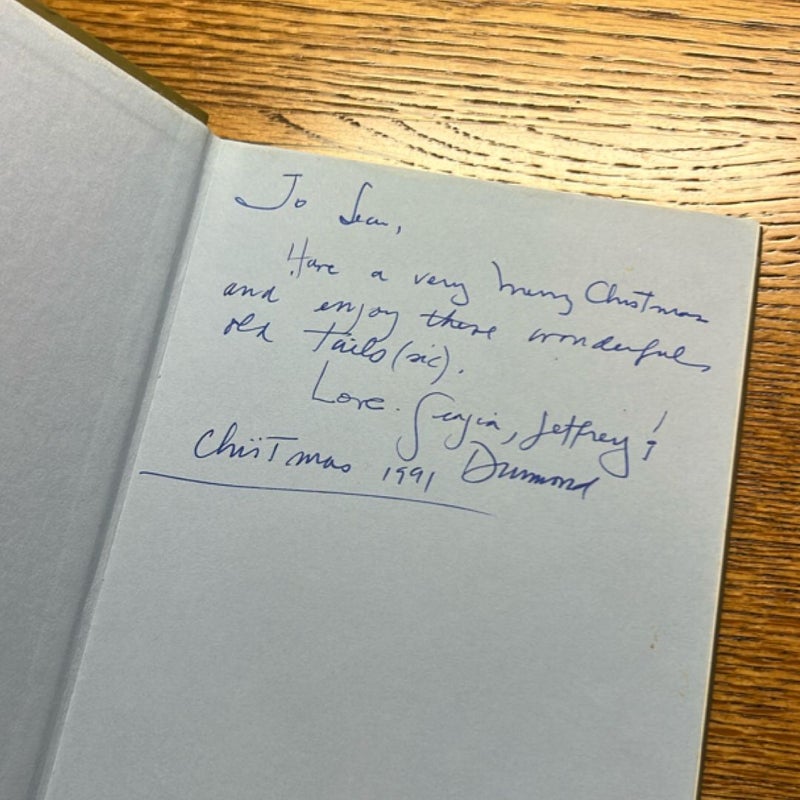 To Sean,
Have a very merry Christmas
and enjoy these wonderful
old tails (sic).
Love. Jeffrey &
Christmas 1991 Drumond